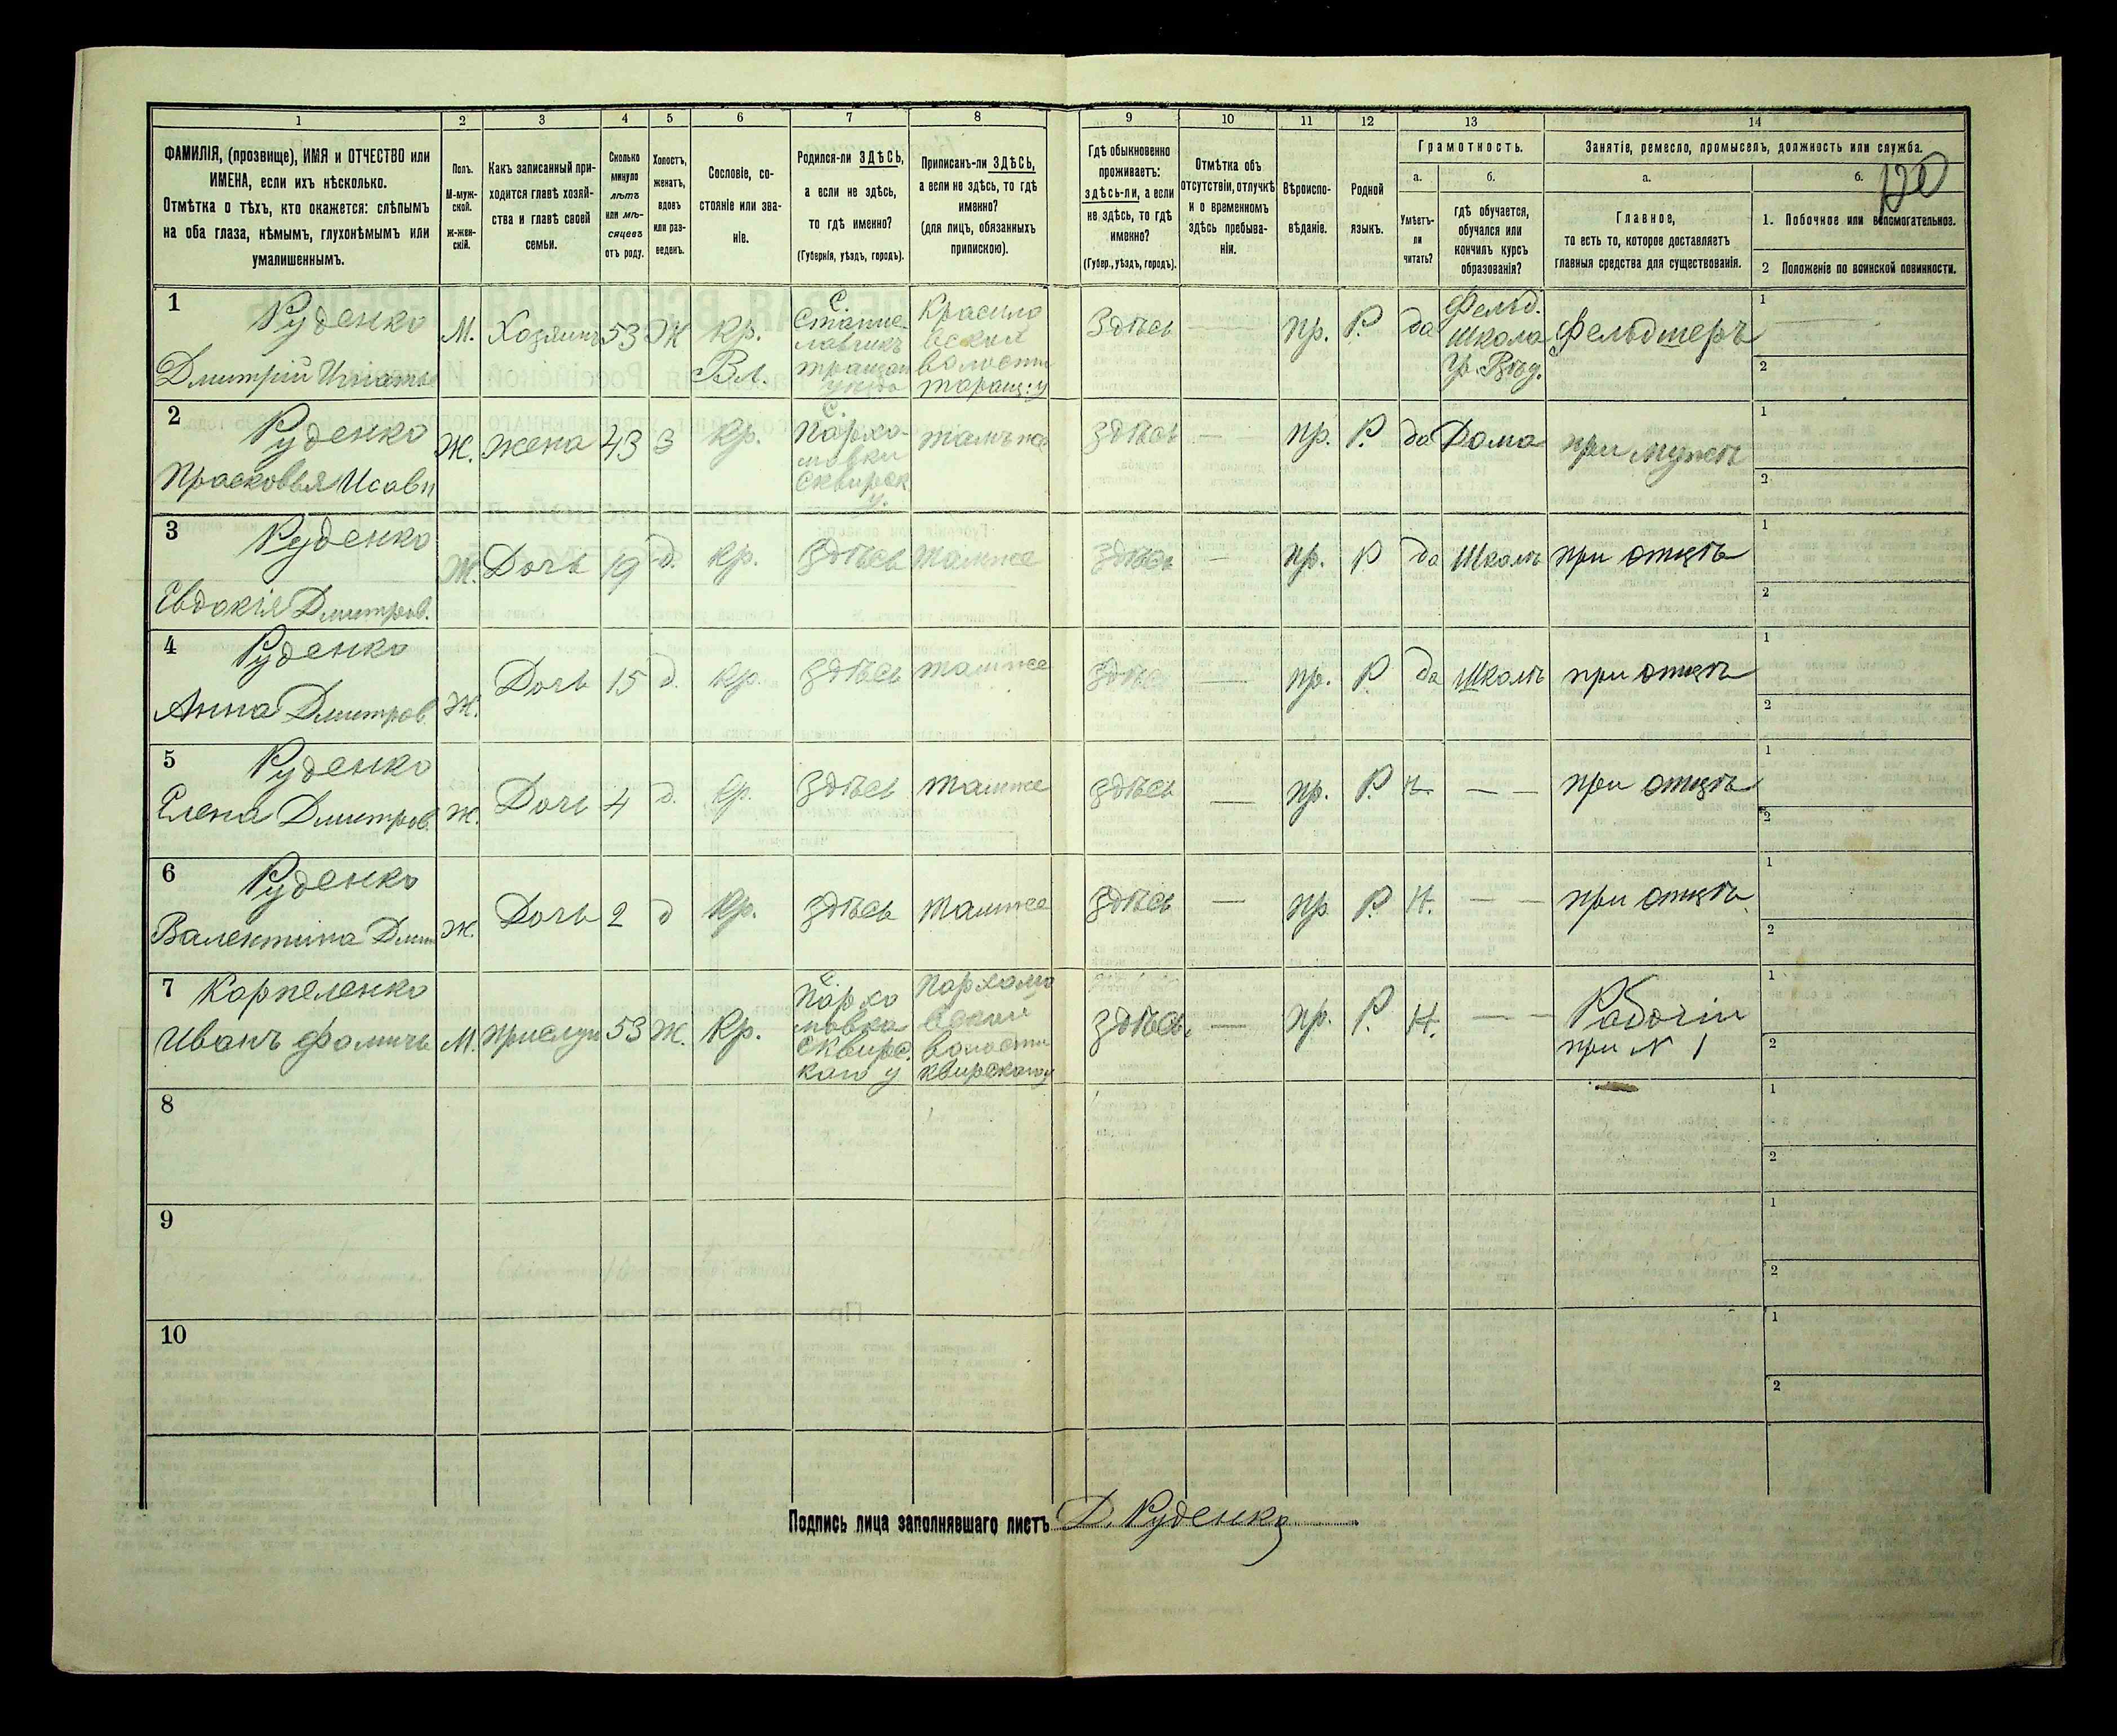 1 2 3 4 5 6 7 8 9 10 11 12 13 14
ФАМИЛІЯ, (прозвище), ИМЯ и ОТЧЕСТВО или
ИМЕНА, если ихъ нѣсколько.
Отмѣтка о тѣхъ, кто окажется: слѣпымъ
на оба глаза, нѣмымъ, глухонѣмымъ или
умалишеннымъ.
Полъ.
М-муж-
ской.
ж-жен-
скій.
Какъ записанный при-
ходится главѣ хозяй-
ства и главѣ своей
семьи.
Сколько
минуло
лѣтъ
или мѣ-
сяцевъ
отъ роду.
Холостъ,
женатъ,
вдовъ
или раз-
веденъ.
Сословіе, со-
стояніе или зва-
ніе.
Родился-ли ЗДѢСЬ,
а если не здѣсь,
то гдѣ именно?
(Губернія, уѣздъ, городъ).
Приписанъ-ли ЗДѢСЬ,
а если не здѣсь, то гдѣ
именно?
(для лицъ, обязанныхъ
припискою).
Гдѣ обыкновенно
проживаетъ:
здѣсь-ли, а если
не здѣсь, то гдѣ
именно?
(Губер., уѣздъ, городъ).
Отмѣтка объ
отсутствіи, отлучкѣ
и о временномъ
здѣсь пребыва-
ніи.
Вѣроиспо-
вѣданіе.
Родной
языкъ.
Грамотность.
а.
Умѣетъ-
ли
читать?
б.
гдѣ обучается,
обучался или
кончилъ курсъ
образованія?
Занятіе, ремесло, промыселъ, должность или служба.
а.
Главное,
то есть то, которое доставляетъ
главныя средства для существованія.
б.
120
1. Побочное или вспомогательное.
2 Положеніе по воинской повинности.
1
Руденко
Дмитрій Игнатье
М.
Хозяинъ
53
Ж
Кр.
Вл.
с.
Стани-
славчикъ
уѣзда
Красило
вской
волости
таращ: у
Здѣсь
—
пр.
Р.
да
Фельд.
школа
Фельдшеръ
1 —
2
2
Руденко
Прасковья Исавн
Ж.
жена
43
З
кр.
с.
Пархо-
мовки
Сквирск
у.
тамъ же
здѣсь
—
пр.
Р.
да
Дома
при мужѣ
1
2
3
Руденко
Евдокія Дмитров.
Ж.
Дочь
19
д.
кр.
здѣсь
тамже
здѣсь
—
пр.
Р
да
Школѣ
при отцѣ
1
2
4
Руденко
Анна Дмитров
Ж.
Дочь
15
д.
кр.
здѣсь
тамже
здѣсь
—
пр.
Р.
да
Школѣ
при отцѣ
1
2
5
Руденко
Елена Дмитров.
Ж.
Дочь
4
д.
кр.
здѣсь
тамже
здѣсь
—
пр.
Р.
Н.
— —
при отцѣ
1
2
6
Руденко
Валентина Дми
Ж.
Дочь
2
д
Кр.
здѣсь
тамже
здѣсь
—
пр
Р.
Н.
— —
при отцѣ
1
2
7
Карпеленко
Иванъ Фомичъ
М.
Прислуг
53
Ж.
Кр.
с.
Пархо
мовка
Сквирс.
каго у
Пархомо
вской
волости
Сквирскаго у
здѣсь.
—
пр.
Р.
Н.
— —
Рабочій
при N 1
1
2
8
1
2
9
1
2
10
1
2
Подпись лица заполнявшаго листъ Д. Руденко